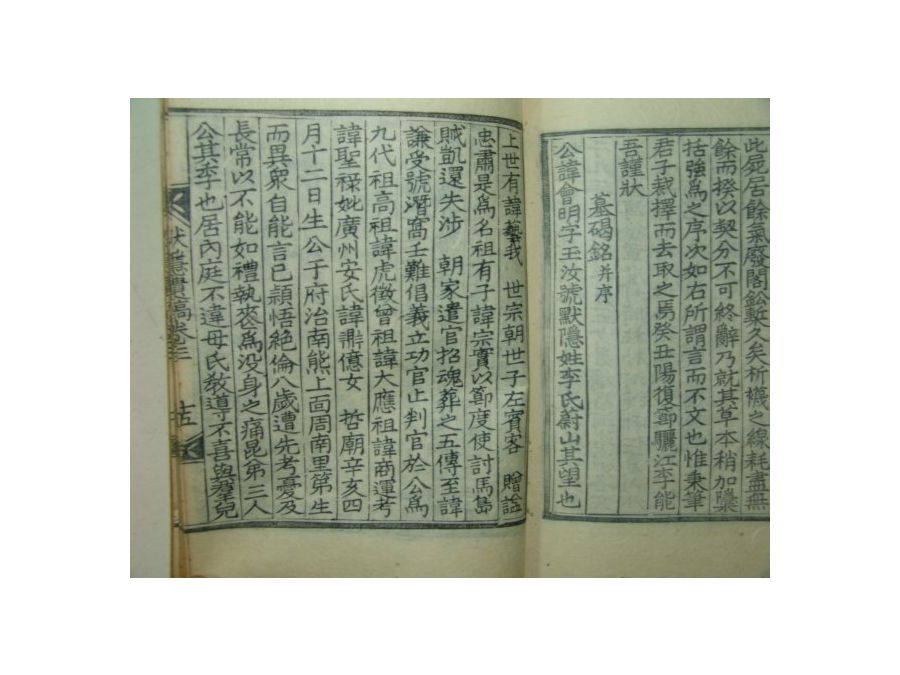 此屍居餘氣廢閣鈆槧久矣祈襪之線耗盡無
餘而揆以契分不可終辭乃就其草本稍加檃
括強爲之序次如右所謂言而不文也惟秉筆
君子裁擇而去取之焉癸丑陽復節驪江李能
吾謹狀
墓碣銘 并序
公諱會明字玉汝號默隱姓李氏蔚山其望也
上世有諱藝我 世宗朝世子左賓客 贈諡
忠肅是爲名祖有子諱宗實以節度使討馬島
賊凱還失涉 朝家遣官招魂葬之五傳至諱
謙受號潛窩壬難倡義立功官止判官於公爲
九代祖高祖諱虎徵曾祖諱大應祖諱商運考
諱聖祿妣廣州安氏諱鼎億女 哲廟辛亥四
月十二日生公于府治南熊上面周南里第生
而異衆自能言已穎悟絶倫八歲遭先考憂及
長常以不能如禮執喪爲没身之痛昆弟三人
公其季也居內庭不違母氏敎導不喜與羣兒
遺稿卷之三